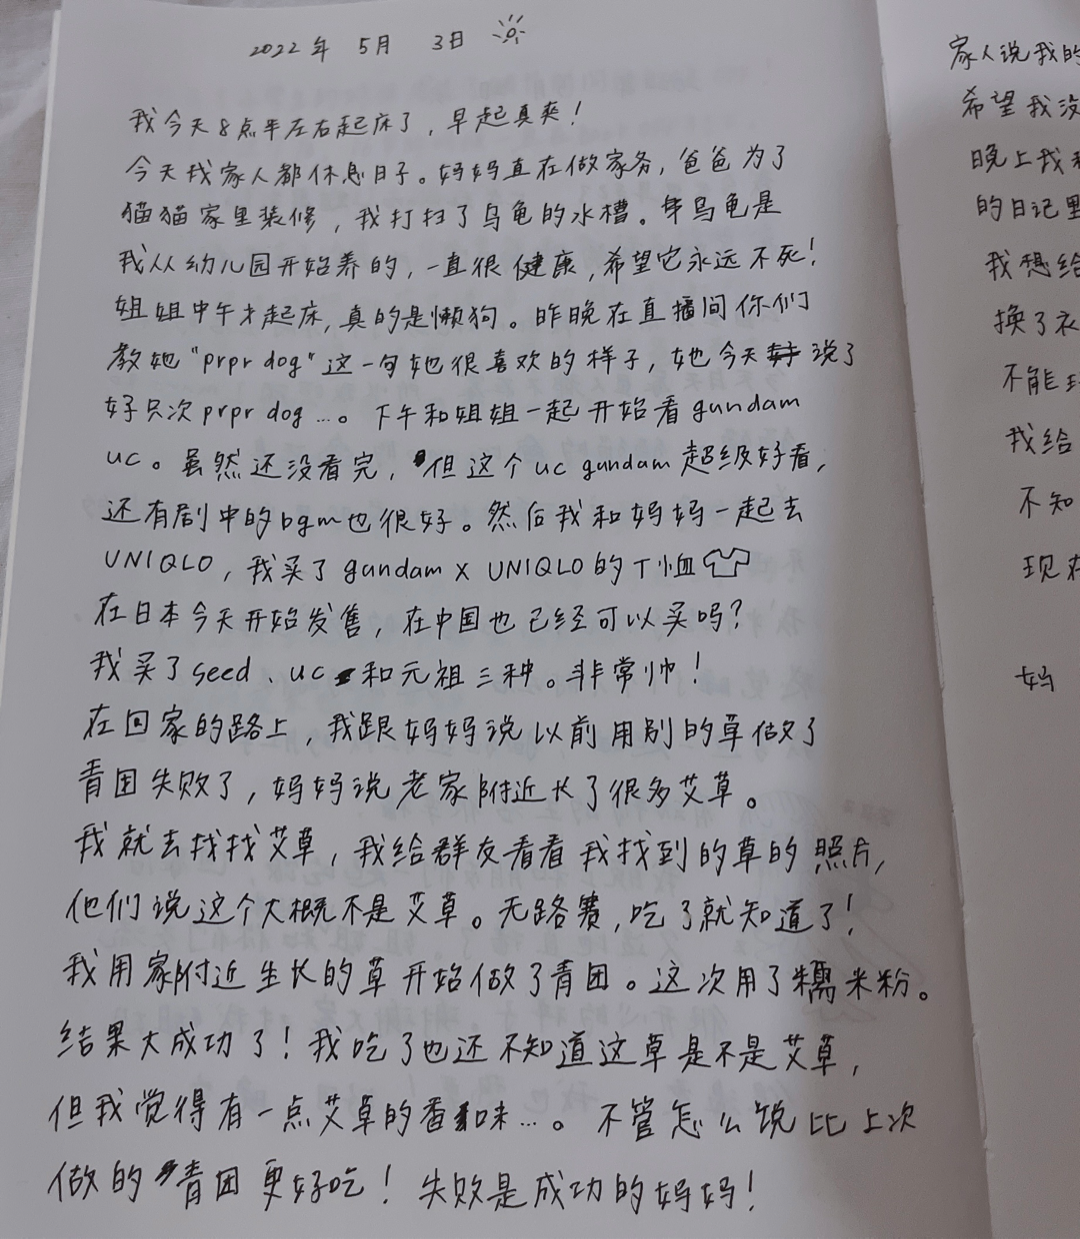 2022年 5月 3日
我今天8点半左右起床了，早起真爽！
今天我家人都休息日子。妈妈直在做家务，爸爸为了
猫猫家里装修，我打扫了乌龟的水槽。乌龟是
我从幼儿园开始养的，一直很健康，希望它永远不死！
姐姐中午才起床，真的是懒狗。昨晚在直播间你们
教她"prpr dog"这一句她很喜欢的样子，她今天说了
好只次prpr dog…。下午和姐姐一起开始看gundam
uc。虽然还没看完，但这个uc gundam超级好看，
还有剧中的bgm也很好。然后我和妈妈一起去
UNIQLO，我买了gundam x UNIQLO的T恤
在日本今天开始发售，在中国也已经可以买吗？
我买了seed、uc和元祖三种。非常帅！
在回家的路上，我跟妈妈说以前用别的草做了
青团失败了，妈妈说老家附近长了很多艾草。
我就去找找艾草，我给群友看看我找到的草的照片，
他们说这个大概不是艾草。无路赛，吃了就知道了！
我用家附近生长的草开始做了青团。这次用了糯米粉。
结果大成功了！我吃了也还不知道这草是不是艾草，
但我觉得有一点艾草的香味…。不管怎么说比上次
做的青团更好吃！失败是成功的妈妈！
家人说我的
希望我没
晚上我
的日记里
我想给
换了衣
不能
我给
不知
现在
妈